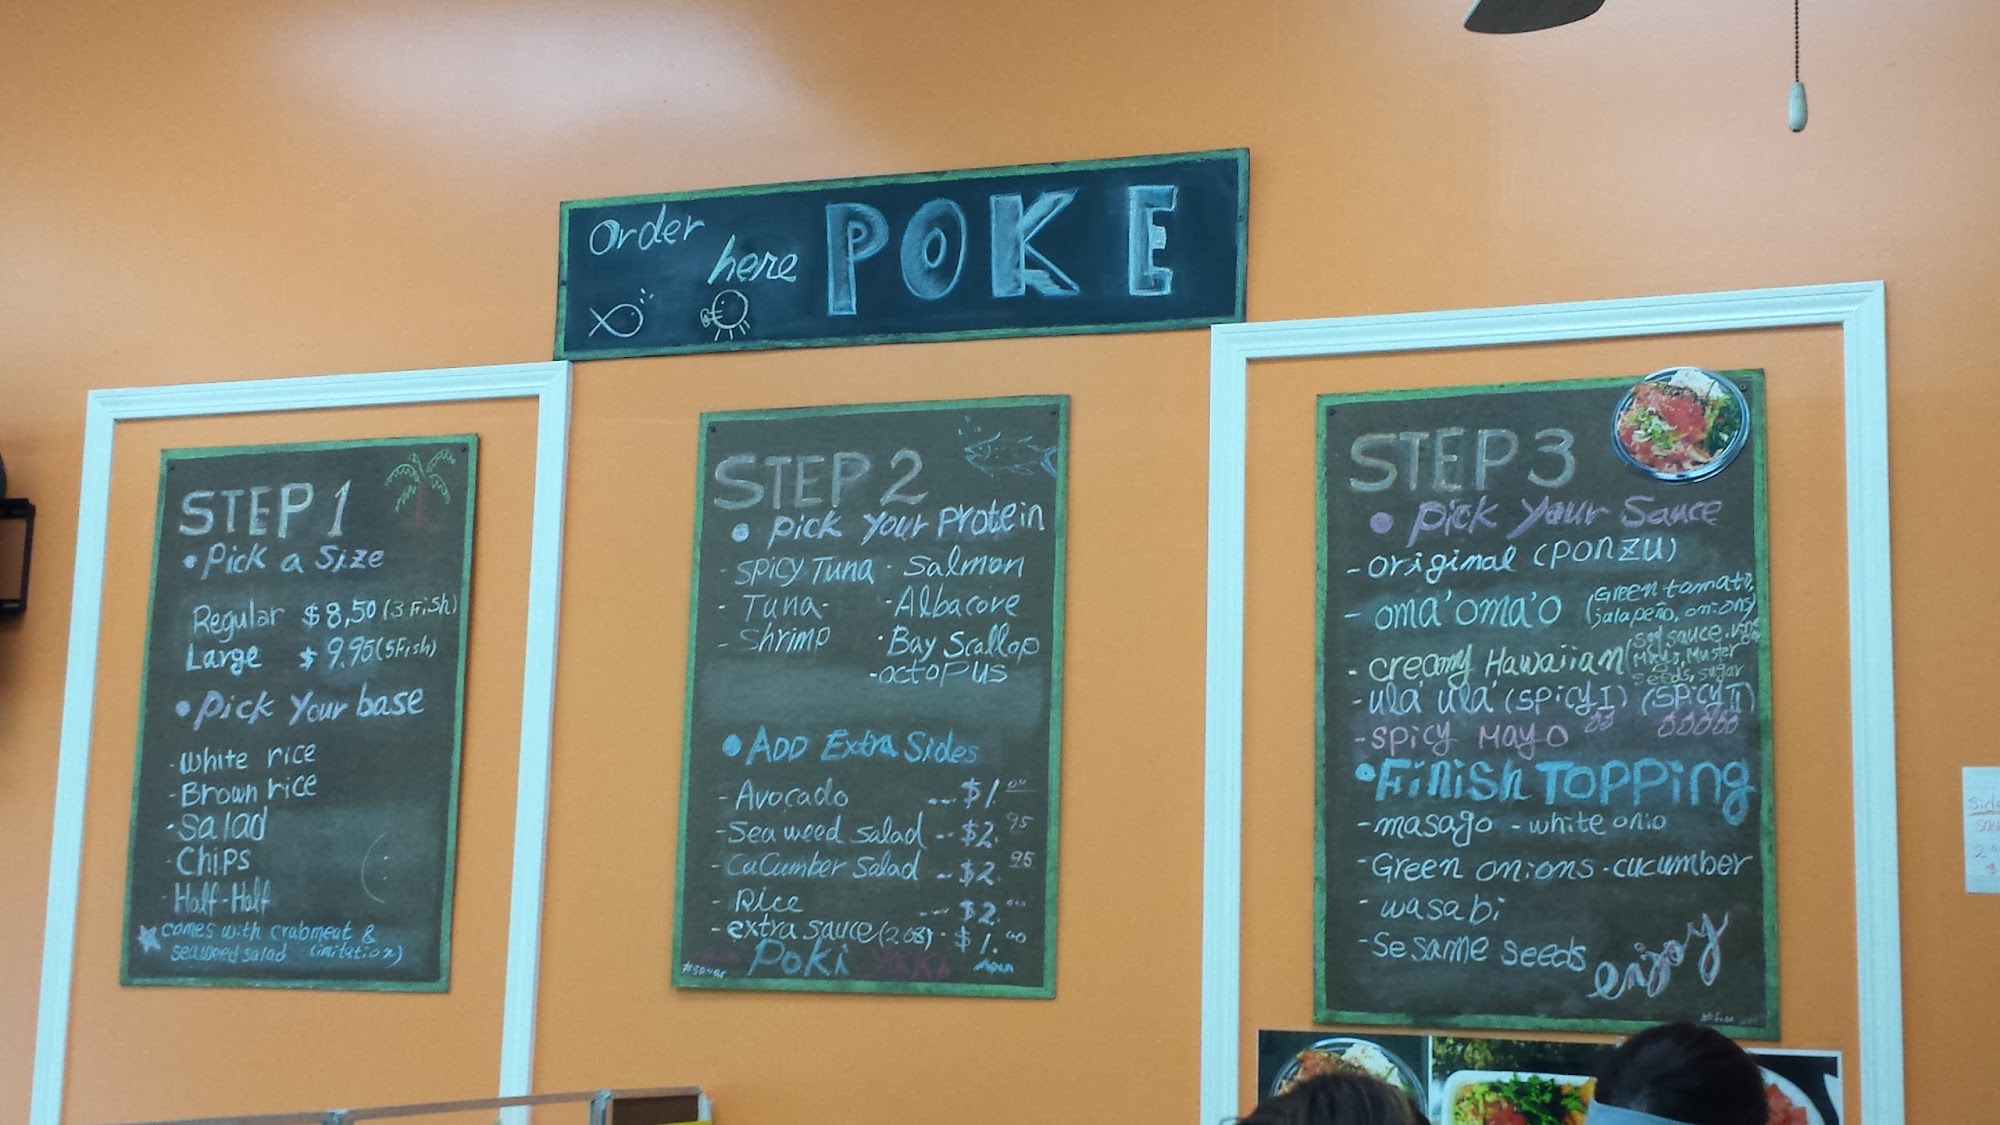 Order here POKE
STEP 1
• Pick a Size
Regular $8,50 (3 Fish)
Large $9.95 (5Fish)
• Pick Your base
- White rice
- Brown rice
- Salad
- Chips
- Half-Half
comes with crabmeat &
seaweed salad (imitation)
STEP 2
• Pick Your Protein
- SPicy Tuna · Salmon
- Tuna · Albacore
- Shrimp · Bay Scallop
- octopus
• ADD Extra Sides
- Avocado --- $1.00
- Sea weed Salad -- $2.95
- CuCumber Salad - $2.95
- Rice --- $2.00
- extra sauce (2 oz) - $1.00
Poki Yaki
STEP 3
• Pick Your Sauce
- Original (PONZU)
- oma'oma'o (Green tomato,
Jalapeño, onions)
- creamy Hawaiian (Soy sauce,
Mayo, Muster
seeds, sugar
- ula' ula' (SPicy I) (SPicy II)
- SPicy MAYO
• Finish TOPPing
- masago - white onio
- Green onions - cucumber
- wasabi
- Sesame seeds
enjoy